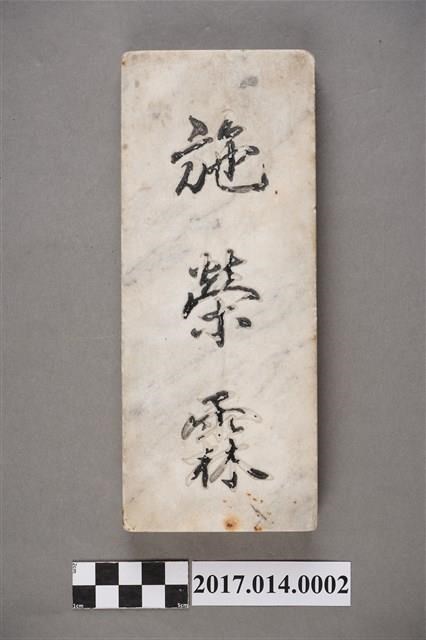 施榮霖
2cm
1cm 5cm
2017.014.0002